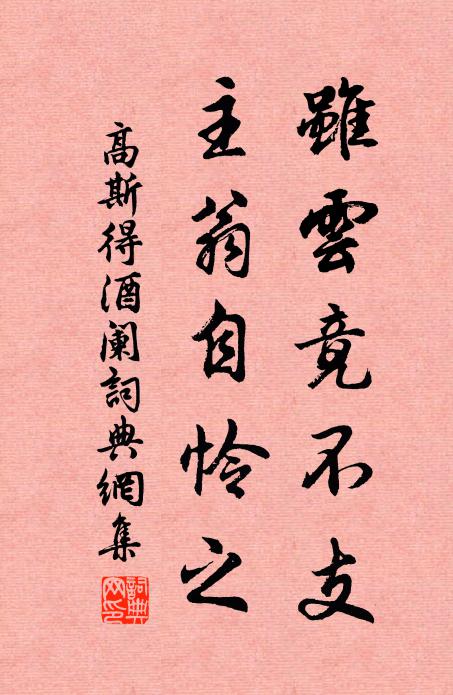 雖雲竟不支
主翁自怜之
高斯得酒闌詞典網集
詞典網印